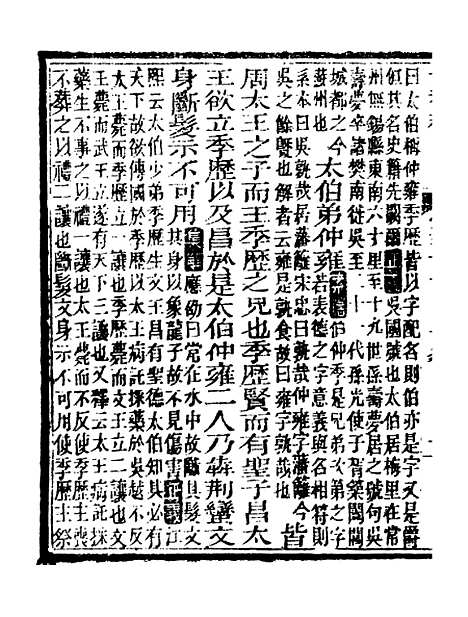 曰太伯稱仲雍季歷皆以字配名則伯亦是字又是爵
但其名史籍先闕爾正義吳國號也太伯居梅里在常
州無錫縣東南六十里至十九世孫壽夢居之號句吳
壽夢卒諸樊南徙吳至二十一代孫光使子胥築闔閭
城都之今蘇州也
太伯弟仲雍
索隱伯仲季是兄弟次第之字若表德之字意義與名相符則
系本曰吳孰哉居藩籬宋忠曰孰哉仲雍字藩籬今
吳之餘暨也解者云雍是孰食故曰雍字孰哉也
皆
周太王之子而王季歷之兄也季歷賢而有聖子昌太
王欲立季歷以及昌於是太伯仲雍二人乃犇荆蠻文
身斷髮示不可用
集解應劭曰常在水中故斷其髮文
其身以象龍子故不見傷害正義江
熙云太伯少弟季歷生文王昌有聖德太伯知其必有
天下故欲傳國於季歷以太王病託採藥於吳越不反
太王薨而季歷立一讓也季歷薨而文王立二讓也文
王薨而武王立遂有天下三讓也又釋云太王病託採
藥生不事之以禮一讓也太王薨而不反使季歷主喪
不葬之以禮二讓也斷髮文身示不可用使季歷主祭